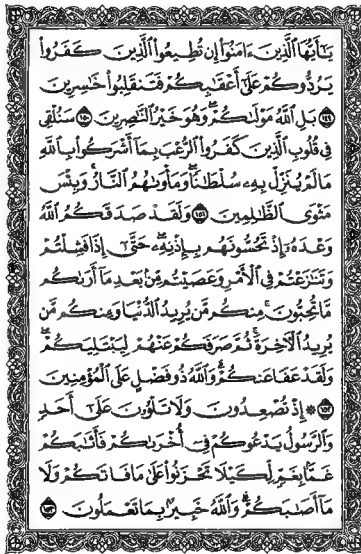 يَـٰٓأَيُّهَا ٱلَّذِينَ ءَامَنُوٓا۟ إِن تُطِيعُوا۟ ٱلَّذِينَ كَفَرُوا۟
يَرُدُّوكُمْ عَلَىٰٓ أَعْقَـٰبِكُمْ فَتَنقَلِبُوا۟ خَـٰسِرِينَ
۝١٤٩ بَلِ ٱللَّهُ مَوْلَىٰكُمْ ۖ وَهُوَ خَيْرُ ٱلنَّـٰصِرِينَ ۝١٥٠ سَنُلْقِى
فِى قُلُوبِ ٱلَّذِينَ كَفَرُوا۟ ٱلرُّعْبَ بِمَآ أَشْرَكُوا۟ بِٱللَّهِ
مَا لَمْ يُنَزِّلْ بِهِۦ سُلْطَـٰنًا ۖ وَمَأْوَىٰهُمُ ٱلنَّارُ ۚ وَبِئْسَ
مَثْوَى ٱلظَّـٰلِمِينَ ۝١٥١ وَلَقَدْ صَدَقَكُمُ ٱللَّهُ
وَعْدَهُۥٓ إِذْ تَحُسُّونَهُم بِإِذْنِهِۦ ۖ حَتَّىٰٓ إِذَا فَشِلْتُمْ
وَتَنَـٰزَعْتُمْ فِى ٱلْأَمْرِ وَعَصَيْتُم مِّنۢ بَعْدِ مَآ أَرَىٰكُم
مَّا تُحِبُّونَ ۚ مِنكُم مَّن يُرِيدُ ٱلدُّنْيَا وَمِنكُم مَّن
يُرِيدُ ٱلْـَٔاخِرَةَ ۚ ثُمَّ صَرَفَكُمْ عَنْهُمْ لِيَبْتَلِيَكُمْ ۖ
وَلَقَدْ عَفَا عَنكُمْ ۗ وَٱللَّهُ ذُو فَضْلٍ عَلَى ٱلْمُؤْمِنِينَ
۝١٥٢ ۞ إِذْ تُصْعِدُونَ وَلَا تَلْوُۥنَ عَلَىٰٓ أَحَدٍ
وَٱلرَّسُولُ يَدْعُوكُمْ فِىٓ أُخْرَىٰكُمْ فَأَثَـٰبَكُمْ
غَمًّۢا بِغَمٍّ لِّكَيْلَا تَحْزَنُوا۟ عَلَىٰ مَا فَاتَكُمْ وَلَا
مَآ أَصَـٰبَكُمْ ۗ وَٱللَّهُ خَبِيرٌۢ بِمَا تَعْمَلُونَ ۝١٥٣